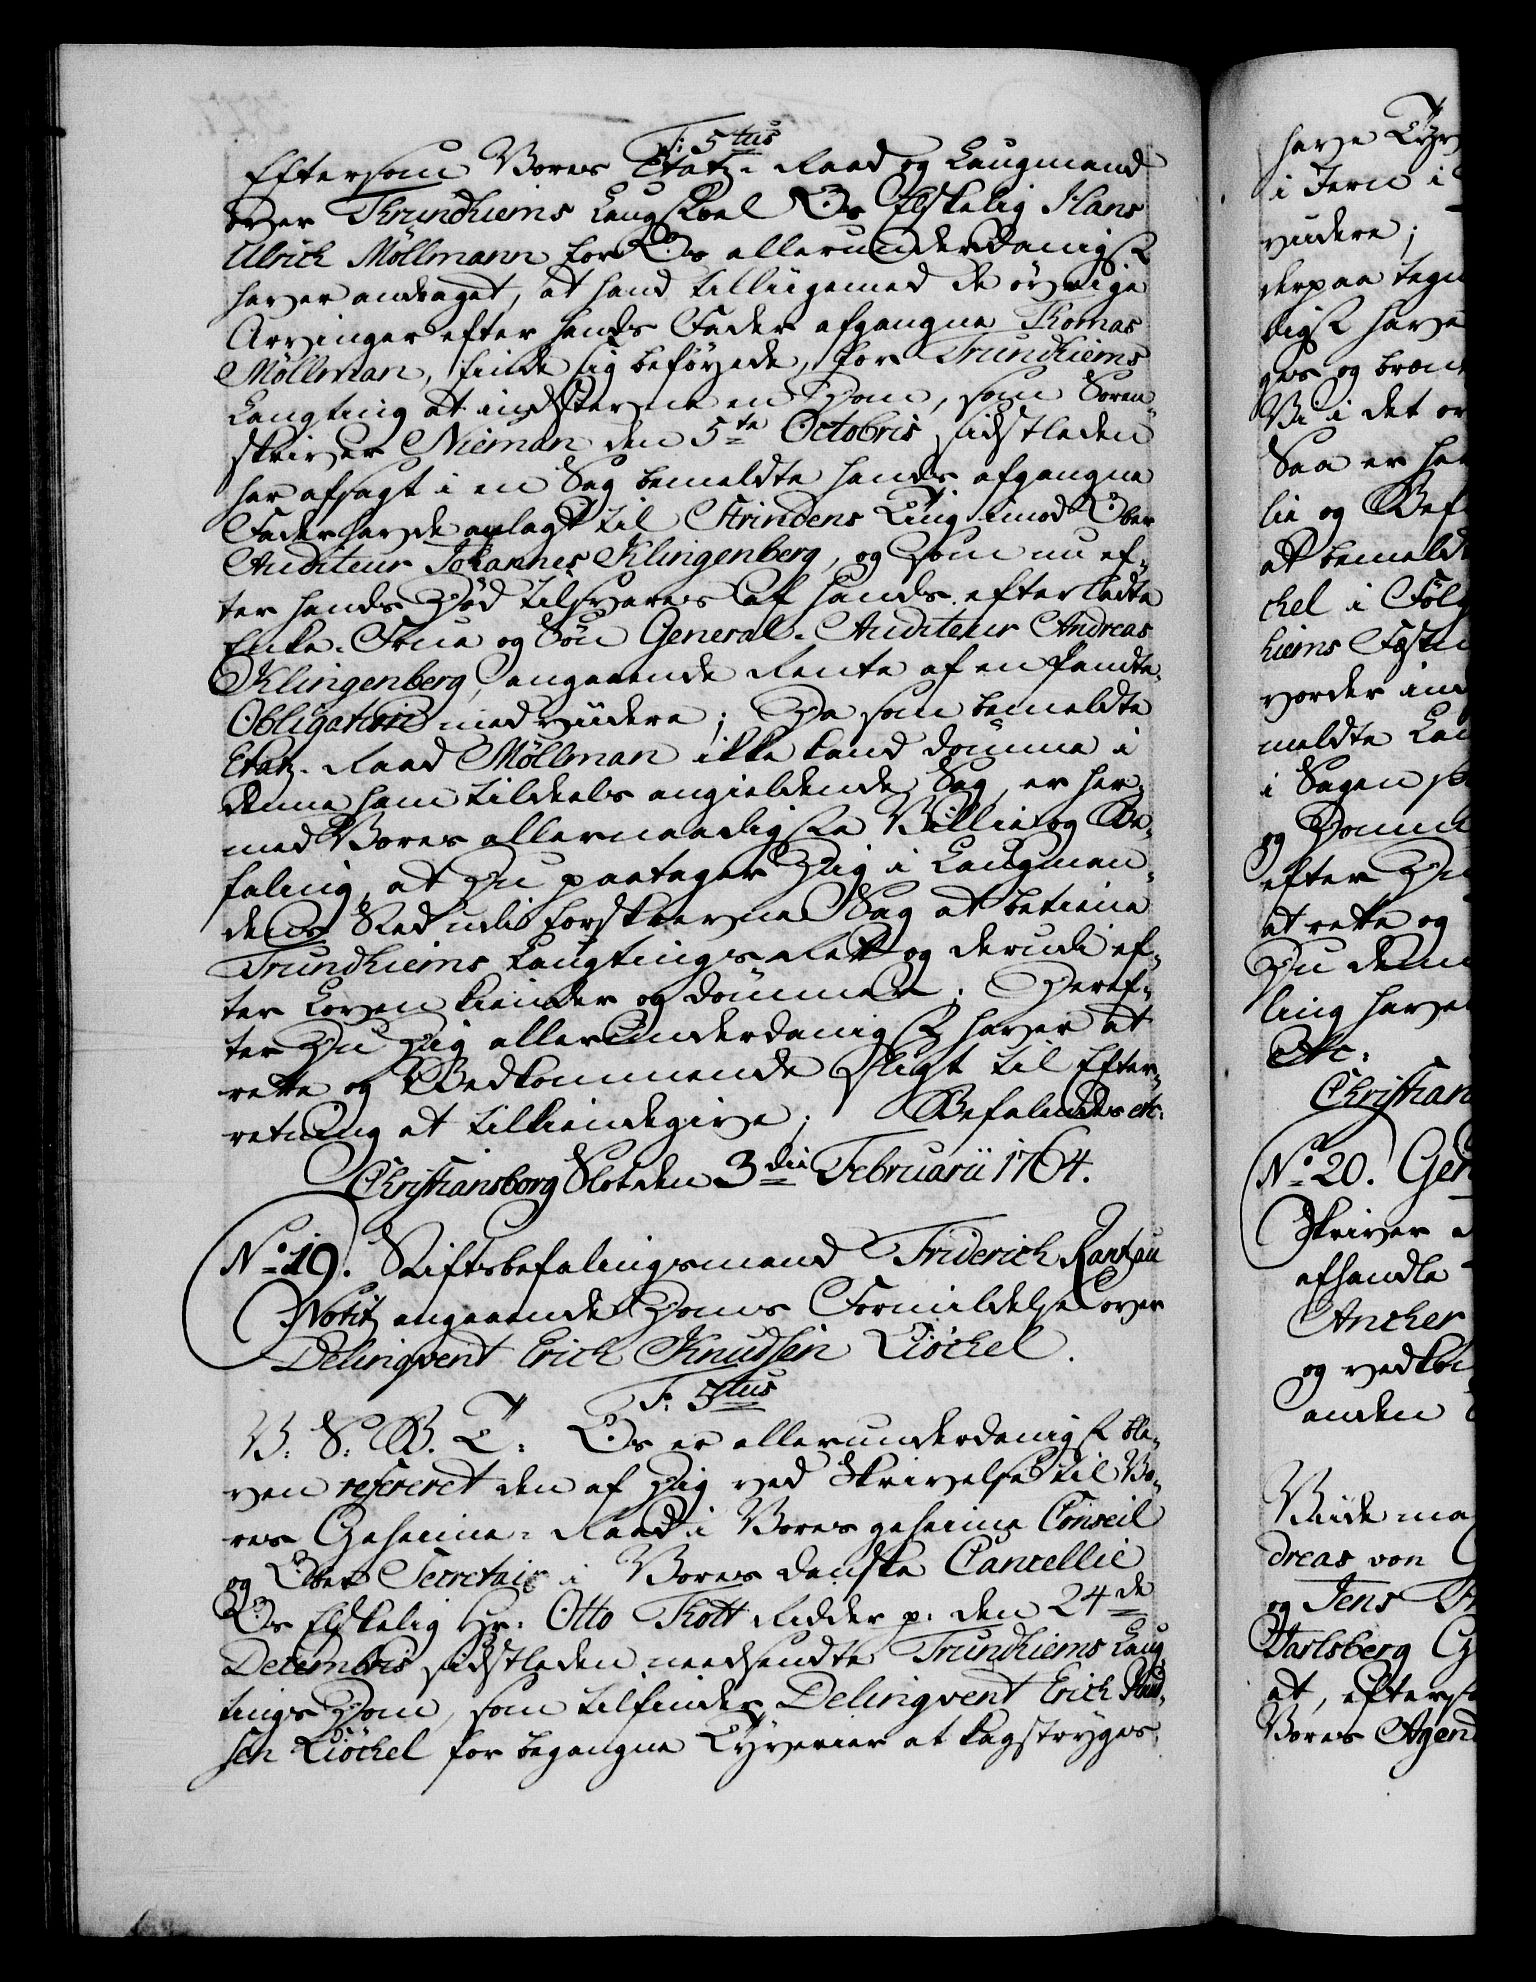 F: 5tus
Eftersom Vores Etatz-Raad og Laugmand
over Thrundhiems Laugstoel Os Elskelig Hans
Ulrich Möllmann for Os allerunderdanigst
haver andraget, at hand tilligemed de øvrige
Arvinger efter hands Fader afgangne Thomas
Möllman, finde sig beføyede, for Trundhiems
Laugting at indstevne en Dom, som Soren-
skriver Nieman den 5te Octobris sidstleden
har afsagt i en Sag bemeldte hands afgangne
Fader havde anlagt til Strindens Ting imod Ober
Auditeur Johannes Klingenberg, og som nu ef-
ter hands Død tilsvares af hands efterladte
Enke-Frue og Søn General-Auditeur Andreas
Klingenberg, angaaende Rente af en Pandte-
Obligation med viidere; Da som bemeldte
Etatz-Raad Möllman ikke kand dømme i
denne ham tildeels angieldende Sag, er her-
med Vores allernaadigste Villie og Be-
faling, at Du paatager Dig i Laugman-
dens Sted udi forskrevne Sag at betiene
Trundhiems Laugtings Rett og derudi ef-
ter Loven kiender og dømmer; Deref-
ter Du Dig allerunderdanigst haver at
rette og Vedkommende sligt til Efter-
retning at tilkiendegive; Befalendes etc:
Christiansborg Slot den 3die Februarii 1764.
No 19. Stiftsbefalingsmand Friderich Rantzau
Notitz angaaende Doms Formildelse over
Delinqvent Erich Knudsen Liöchel.
F: 5tus
V: S: B: T: Os er allerunderdanigst ble-
ven refereret den af Dig ved Skrivelse til Vo-
res Geheime-Raad i Vores geheime Conseil
og Ober Secretair i Vores danske Cancellie
Os Elskelig Hr: Otto Thott Ridder p: den 24de
Decembris sidstleden needsendte Trundhiems Laug-
tings Dom, som tilfinder Delinqvent Erich Knud-
sen Liöchel for begangne Tyverier at kagstryges
have Tyv
i Jern i
viidere;
derpaa tegn
digst have
ges og brænd
Vi i det
Saa er her
lie og Bef
at bemeldte
chel i Følg
hiems Fæstn
vorder ind
meldte Lau
i Sagen
og Domm
efter Du
at rette og
Du denn
ling have
etc:
Christian
No 20. Gen
Skriver
afhandle
Ancher
og vedkom
anden
Viide ma
dreas von
og Jens
Jarlsberg
at, efters
Vores Agend